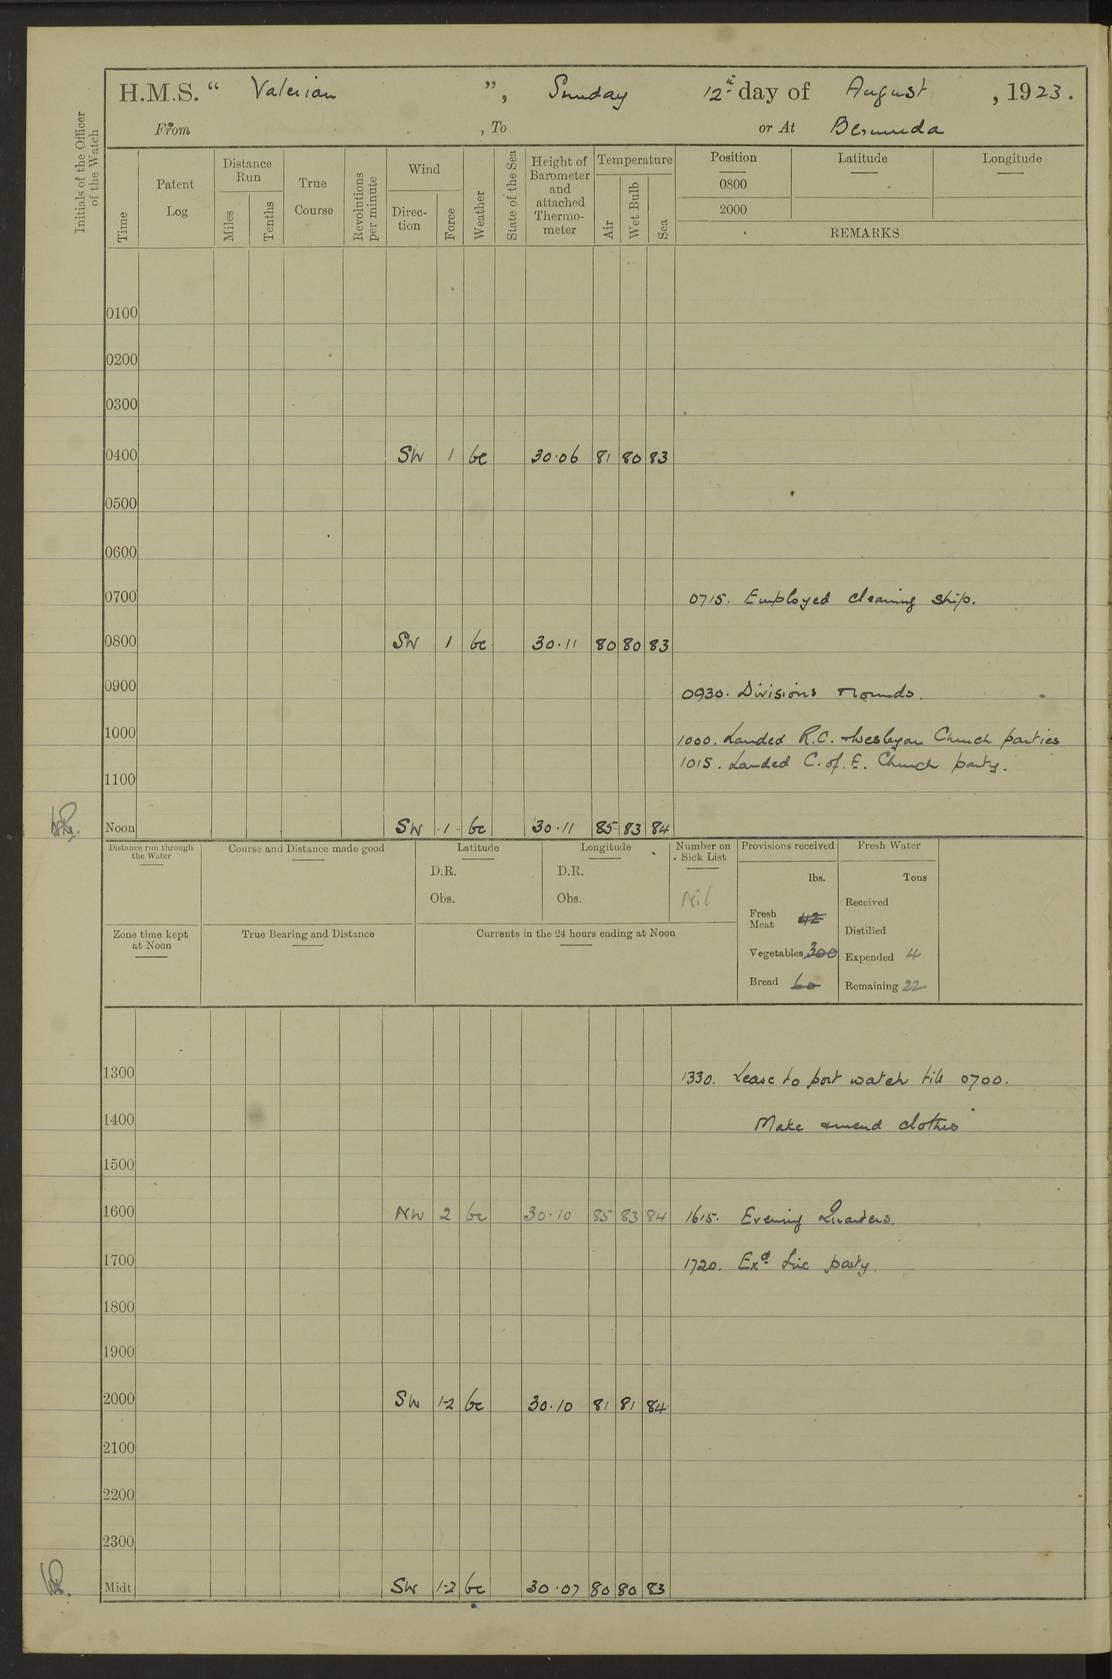 H.M.S. " Valerian ", Sunday 12th day of August, 1923.
From , To or At Bermuda
Initials of the Officer of the Watch
Time
Patent Log
Distance Run
Miles
Tenths
True Course
Revolutions per minute
Wind
Direc-tion
Force
Weather
State of the Sea
Height of Barometer and attached Thermo-meter
Temperature
Air
Wet Bulb
Sea
Position
Latitude
Longitude
0800
2000
REMARKS
0100
0200
0300
0400 SW 1 bc 30.06 81 80 83
0500
0600
0700 0715. Employed cleaning ship.
0800 SW 1 bc 30.11 80 80 83
0900 0930. Divisions rounds.
1000 1000. Landed R.C. + Wesleyan Church parties
1015. Landed C. of E. Church party.
1100
Noon SW 1 bc 30.11 85 83 84
Distance run through the Water
Course and Distance made good
Latitude
D.R.
Obs.
Longitude
D.R.
Obs.
Number on Sick List
Nil
Provisions received
lbs.
Fresh Meat 42
Vegetables 300
Bread 60
Fresh Water
Tons
Received
Distilled
Expended 4
Remaining 22
Zone time kept at Noon
True Bearing and Distance
Currents in the 24 hours ending at Noon
1300 1330. Leave to port watch till 0700.
1400 Make + mend clothes
1500
1600 NW 2 bc 30.10 85 83 84 1615. Evening Quarters.
1700 1720. Exd fire party.
1800
1900
2000 SW 1-2 bc 30.10 81 81 84
2100
2200
2300
Midt SW 1-2 bc 30.07 80 80 83